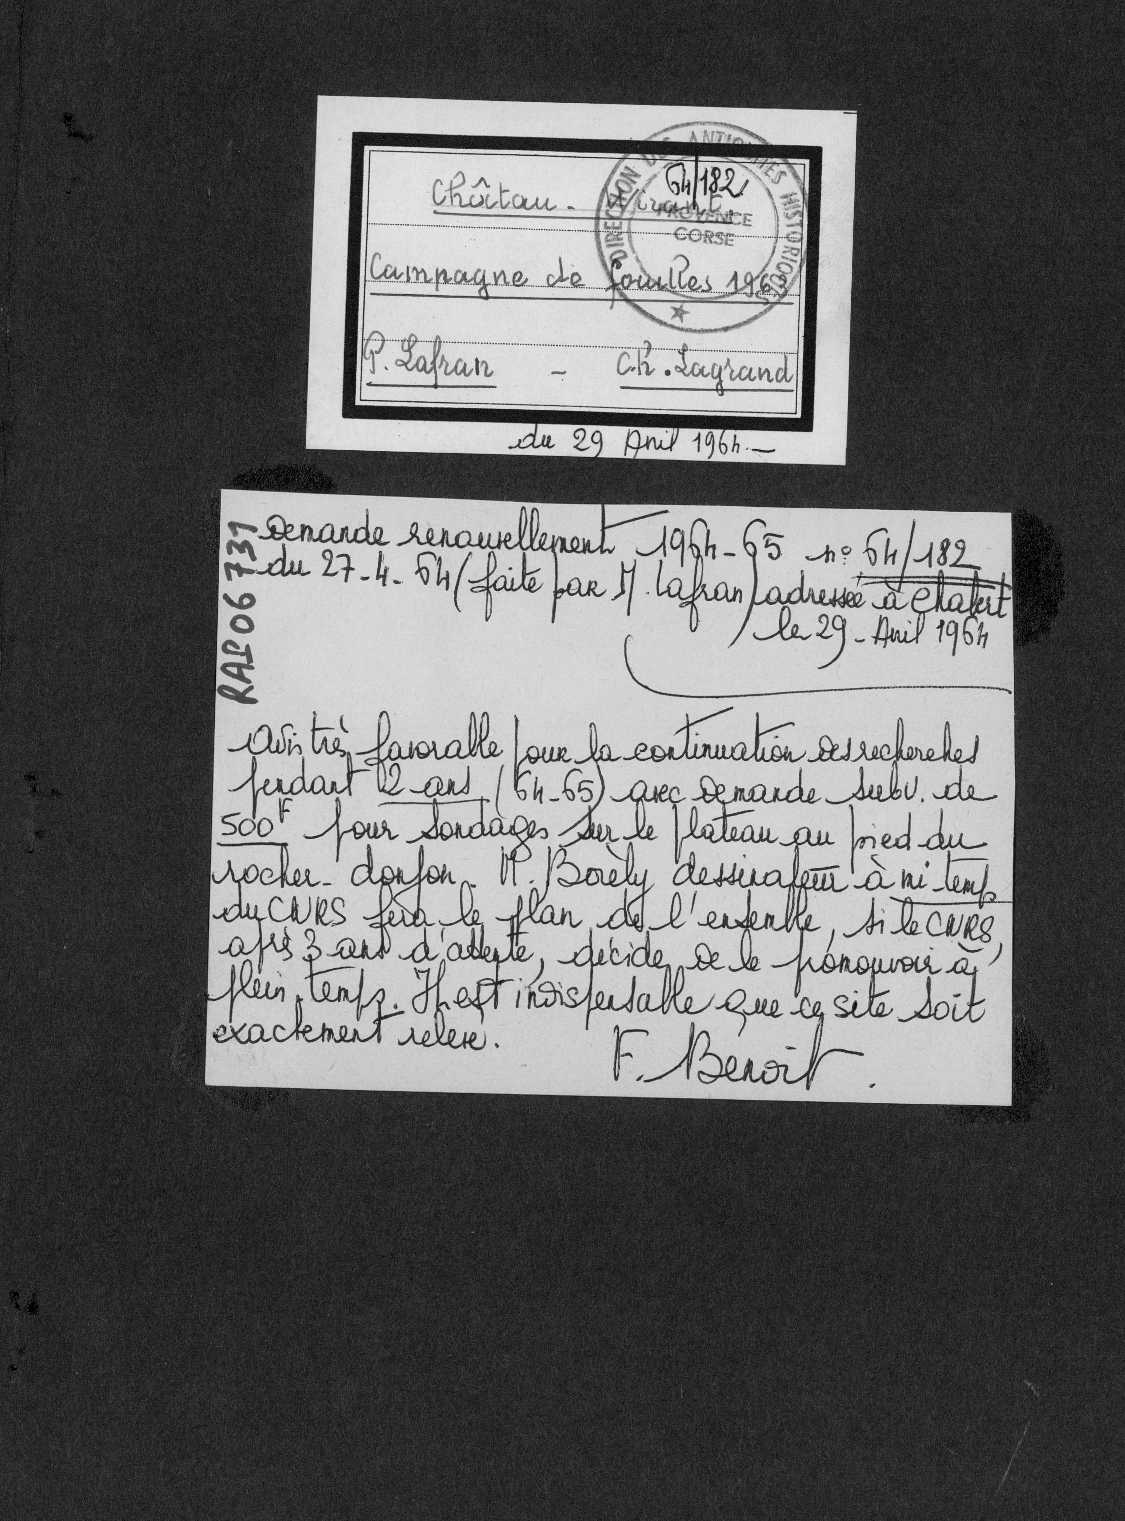 DIRECTION DES ANTIQUITES HISTORIQUES
PROVENCE
CORSE
64/182
Château-Virant.
Campagne de fouilles 1963
P. Lafran - Ch. Lagrand
du 29 Avril 1964.-
RAP06731
Demande renouvellement 1964-65 n° 64/182
du 27-4-64 (faite par M. Lafran) adressée à Chabert
le 29-Avril 1964
Avis très favorable pour la continuation des recherches
pendant 2 ans (64-65) avec demande subv. de
500F pour sondages sur le plateau au pied du
rocher-donjon. M. Borély dessinateur à mi-temps
du CNRS fera le plan de l'ensemble, si le CNRS,
après 3 ans d'attente, décide de le promouvoir à
plein temps. Il est indispensable que ce site soit
exactement relevé.
F. Benoit.